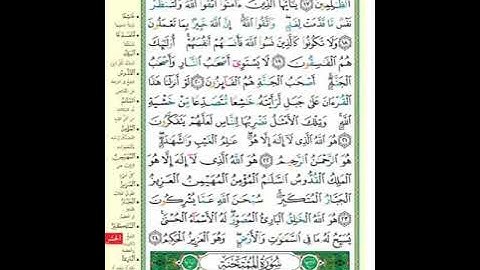 ٱلظَّٰلِمِينَ ﴿١٧﴾ يَٰٓأَيُّهَا ٱلَّذِينَ ءَامَنُوا۟ ٱتَّقُوا۟ ٱللَّهَ وَلْتَنظُرْ
نَفْسٌ مَّا قَدَّمَتْ لِغَدٍ ۖ وَٱتَّقُوا۟ ٱللَّهَ ۚ إِنَّ ٱللَّهَ خَبِيرٌۢ بِمَا تَعْمَلُونَ
﴿١٨﴾ وَلَا تَكُونُوا۟ كَٱلَّذِينَ نَسُوا۟ ٱللَّهَ فَأَنسَىٰهُمْ أَنفُسَهُمْ ۚ أُو۟لَٰٓئِكَ
هُمُ ٱلْفَٰسِقُونَ ﴿١٩﴾ لَا يَسْتَوِىٓ أَصْحَٰبُ ٱلنَّارِ وَأَصْحَٰبُ
ٱلْجَنَّةِ ۚ أَصْحَٰبُ ٱلْجَنَّةِ هُمُ ٱلْفَآئِزُونَ ﴿٢٠﴾ لَوْ أَنزَلْنَا هَٰذَا
ٱلْقُرْءَانَ عَلَىٰ جَبَلٍ لَّرَأَيْتَهُۥ خَٰشِعًا مُّتَصَدِّعًا مِّنْ خَشْيَةِ
ٱللَّهِ ۚ وَتِلْكَ ٱلْأَمْثَٰلُ نَضْرِبُهَا لِلنَّاسِ لَعَلَّهُمْ يَتَفَكَّرُونَ
﴿٢١﴾ هُوَ ٱللَّهُ ٱلَّذِى لَآ إِلَٰهَ إِلَّا هُوَ ۖ عَٰلِمُ ٱلْغَيْبِ وَٱلشَّهَٰدَةِ ۖ
هُوَ ٱلرَّحْمَٰنُ ٱلرَّحِيمُ ﴿٢٢﴾ هُوَ ٱللَّهُ ٱلَّذِى لَآ إِلَٰهَ إِلَّا هُوَ
ٱلْمَلِكُ ٱلْقُدُّوسُ ٱلسَّلَٰمُ ٱلْمُؤْمِنُ ٱلْمُهَيْمِنُ ٱلْعَزِيزُ
ٱلْجَبَّارُ ٱلْمُتَكَبِّرُ ۚ سُبْحَٰنَ ٱللَّهِ عَمَّا يُشْرِكُونَ
﴿٢٣﴾ هُوَ ٱللَّهُ ٱلْخَٰلِقُ ٱلْبَارِئُ ٱلْمُصَوِّرُ ۖ لَهُ ٱلْأَسْمَآءُ ٱلْحُسْنَىٰ ۚ
يُسَبِّحُ لَهُۥ مَا فِى ٱلسَّمَٰوَٰتِ وَٱلْأَرْضِ ۖ وَهُوَ ٱلْعَزِيزُ ٱلْحَكِيمُ ﴿٢٤﴾
سُورَةُ ٱلْمُمْتَحَنَةِ